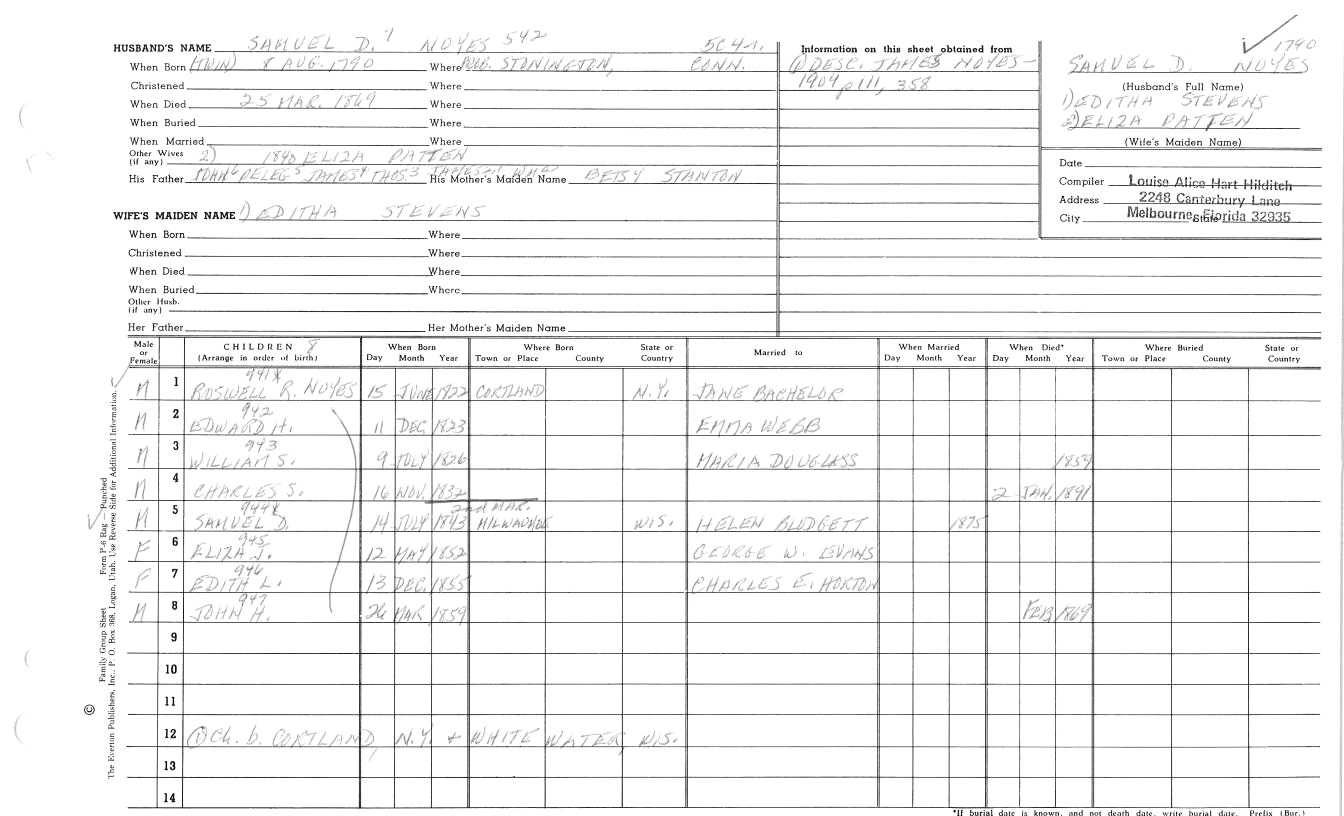 1790
HUSBAND'S NAME SAMUEL D. NOYES 542 5C4-1.
When Born (TWIN) 8 AUG. 1790 Where STONINGTON, CONN.
Christened Where
When Died 25 MAR. 1869 Where
When Buried Where
When Married Where
Other Wives (if any) 2) 1840 ELIZA PATTEN
His Father JOHN6 PELEG5 JAMES4 THOS3 His Mother's Maiden Name BETSY STANTON
Information on this sheet obtained from
① DESC. JAMES NOYES -
1904 p 111, 358
SAMUEL D. NOYES
(Husband's Full Name)
1) EDITHA STEVENS
2) ELIZA PATTEN
(Wife's Maiden Name)
Date
Compiler Louise Alice Hart Hilditch
Address 2248 Canterbury Lane
City Melbourne, Florida 32935 State
WIFE'S MAIDEN NAME 1) EDITHA STEVENS
When Born Where
Christened Where
When Died Where
When Buried Where
Other Husb. (if any)
Her Father Her Mother's Maiden Name
Male or Female CHILDREN 8 (Arrange in order of birth) When Born Day Month Year Where Born Town or Place County State or Country Married to When Married Day Month Year When Died* Day Month Year Where Buried Town or Place County State or Country
941x
M 1 ROSWELL R. NOYES 15 JUNE 1822 CORTLAND N.Y. JANE BACHELOR
942
M 2 EDWARD H. 11 DEC. 1823 EMMA WEBB
943
M 3 WILLIAM S. 9 JULY 1826 MARIA DOUGLASS 1859
M 4 CHARLES S. 16 NOV. 1832 2 JAN. 1891
944x 2nd MAR.
M 5 SAMUEL D. 14 JULY 1843 MILWAUKEE WIS. HELEN BLODGETT 1875
945
F 6 ELIZA J. 12 MAY 1852 GEORGE W. EVANS
946
F 7 EDITH L. 13 DEC. 1855 CHARLES E. HORTON
947
M 8 JOHN H. 26 MAR 1859 FEB. 1869
9
10
11
12 ① Ch. b. CORTLAND, N.Y. + WHITE WATER, WIS.
13
14
*If burial date is known, and not death date, write burial date. Prefix (Bur.)
© Family Group Sheet Form P-6 Rag - Punched
The Everton Publishers, Inc., P. O. Box 368, Logan, Utah. Use Reverse Side for Additional Information.